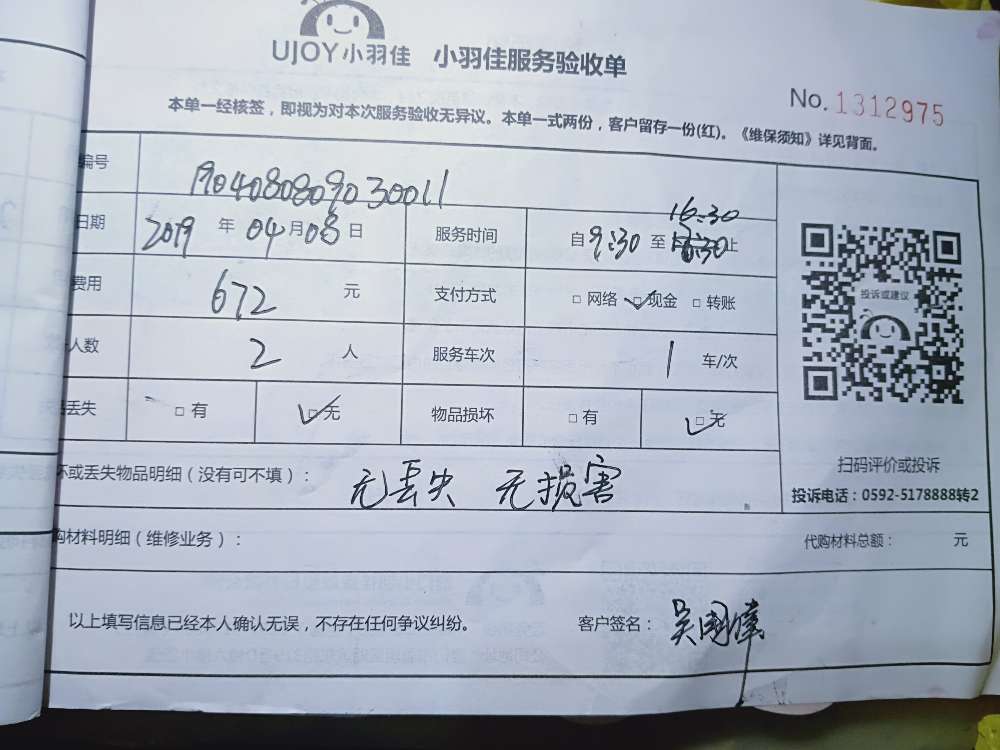 UJOY小羽佳 小羽佳服务验收单
No. 1312975
本单一经核签，即视为对本次服务验收无异议。本单一式两份，客户留存一份(红)。《维保须知》详见背面。
编号 190408089030011
日期 2019 年 04 月 08 日 服务时间 自 9:30 至 16:30 止
费用 672 元 支付方式 □ 网络 ✓□ 现金 □ 转账
人数 2 人 服务车次 1 车/次
丢失 □ 有 ✓□ 无 物品损坏 □ 有 ✓□ 无
投诉或建议
扫码评价或投诉
投诉电话：0592-5178888转2
坏或丢失物品明细（没有可不填）： 无丢失 无损害
购材料明细（维修业务）： 代购材料总额： 元
以上填写信息已经本人确认无误，不存在任何争议纠纷。 客户签名： 吴国伟